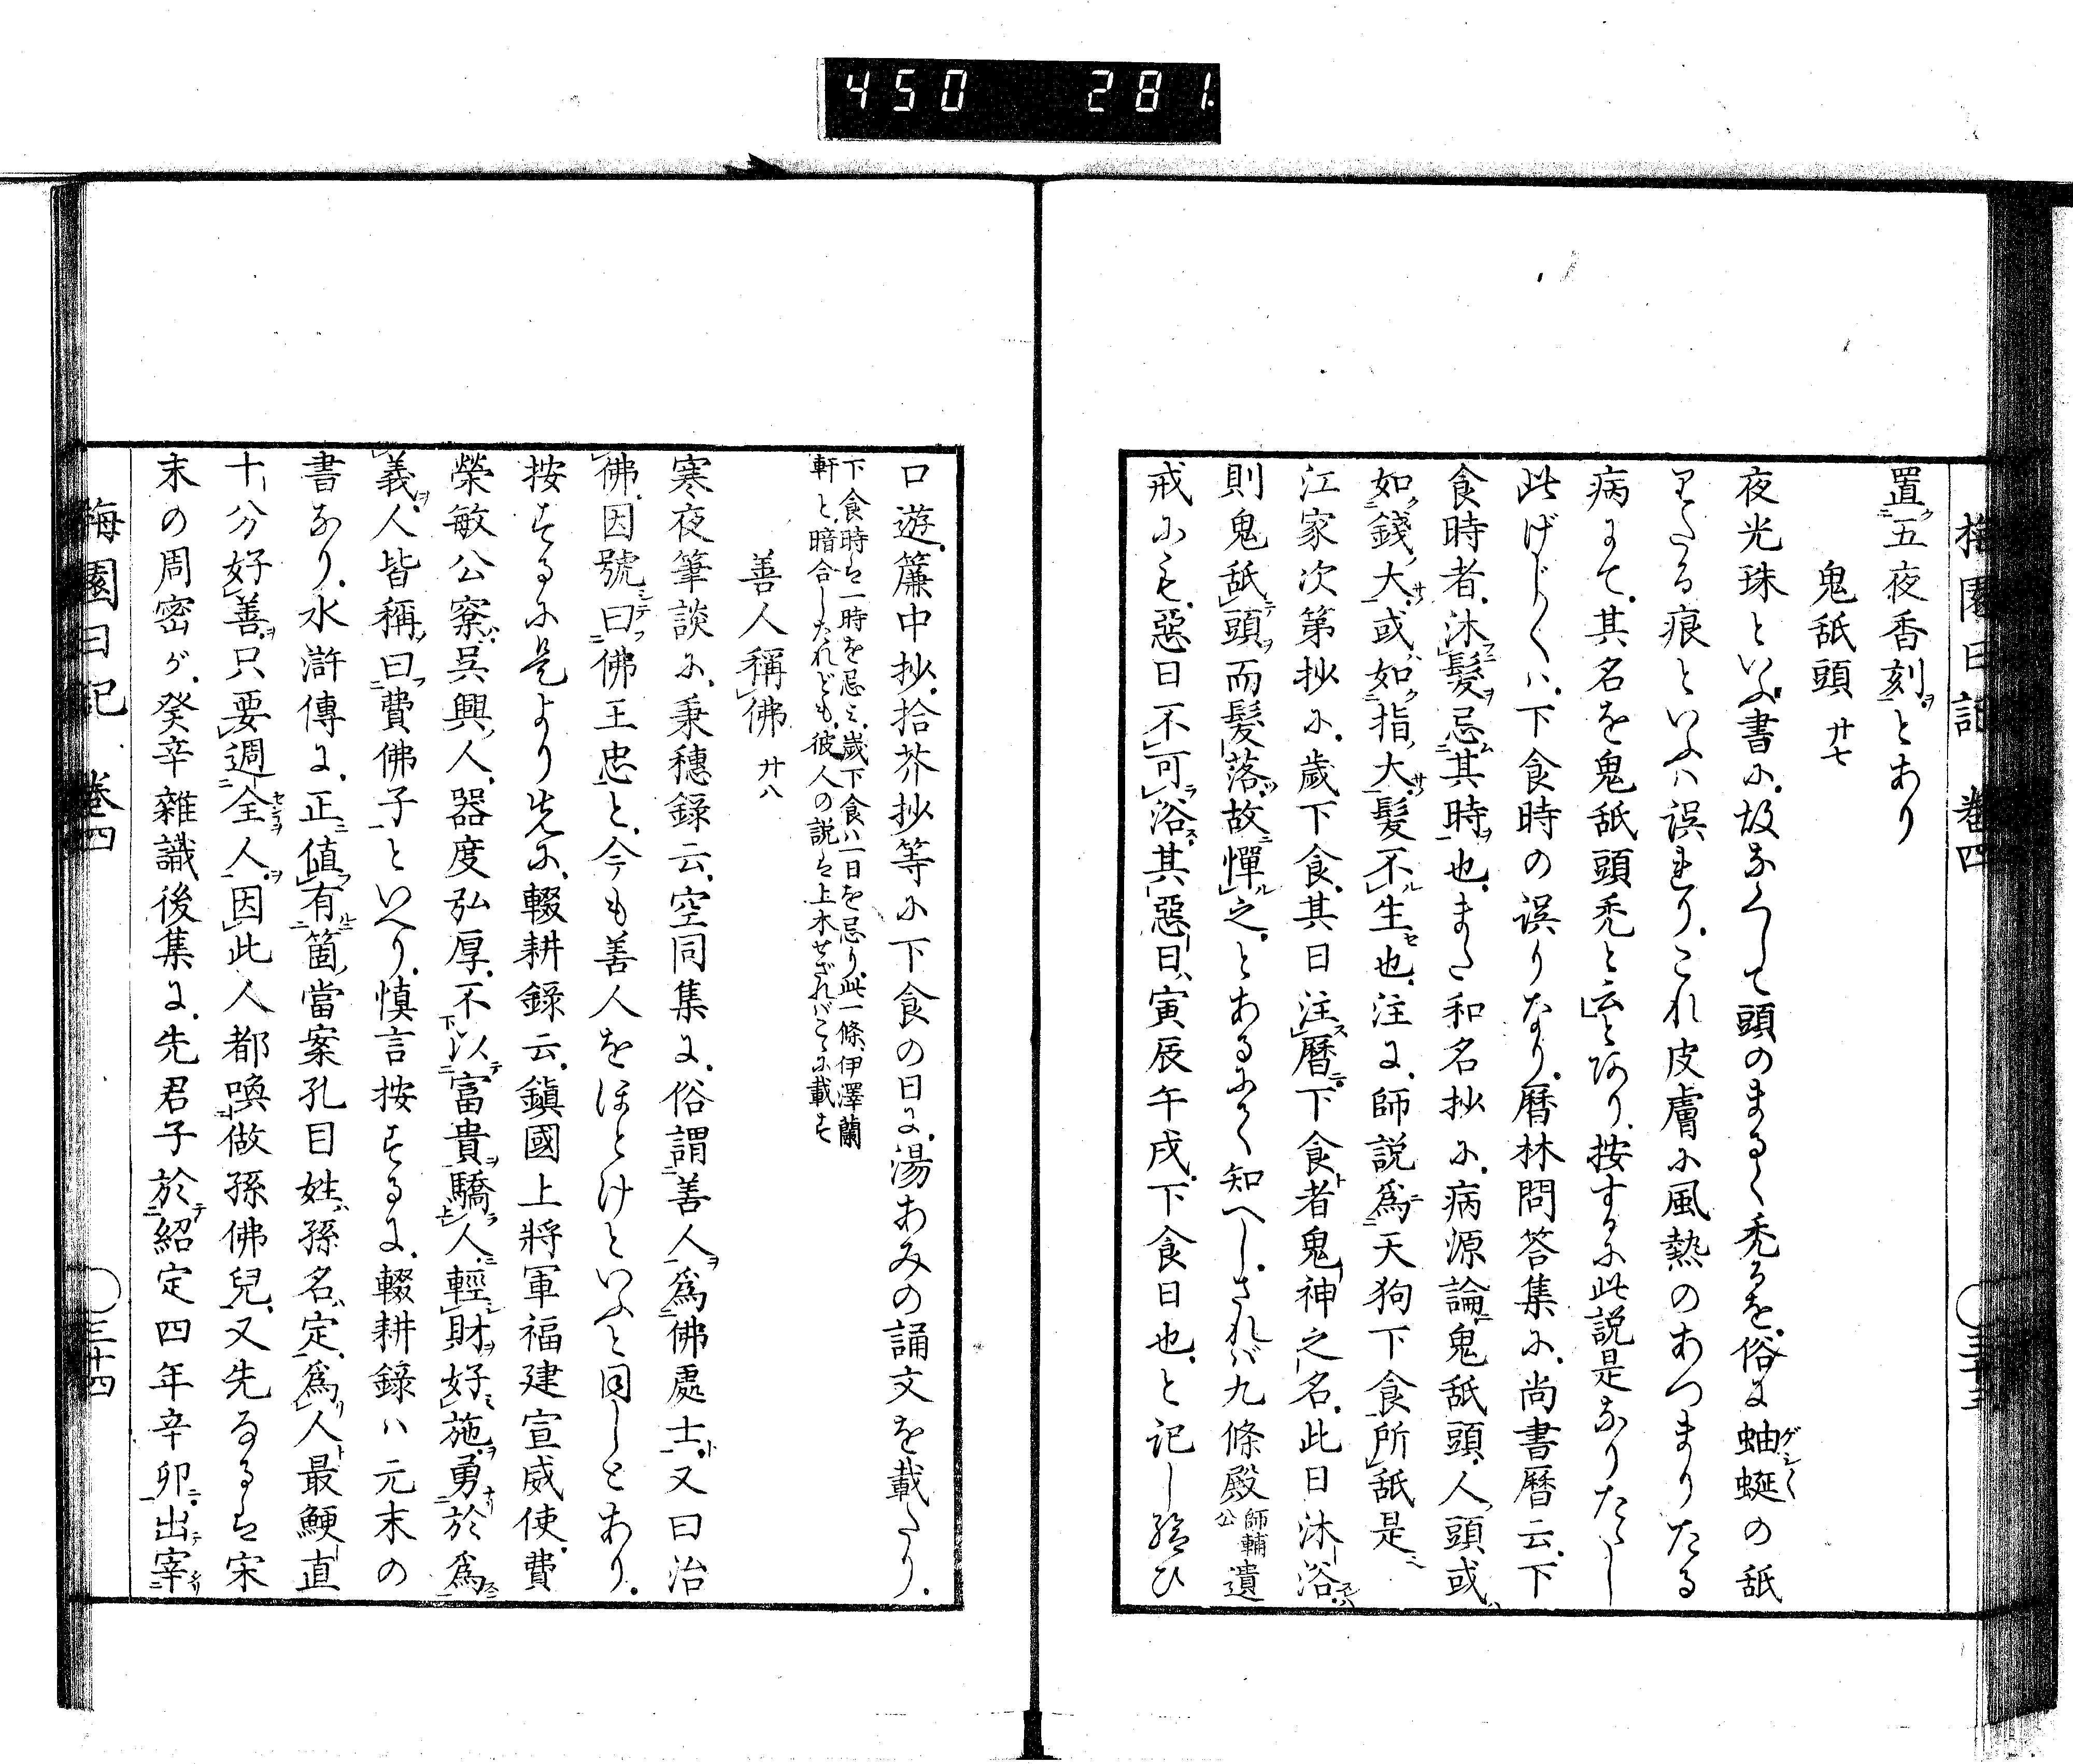 450 281
梅園日記 巻四 〇三十三
置五夜香刻とあり
鬼舐頭 廿七
夜光珠といふ書に故なくして頭のまるく禿るを俗に蚰蜒の舐
りたる痕といふハ誤れりこれ皮膚に風熱のあつまりたる
病にて其名を鬼舐頭禿と云とあり按するに此説是なりたゝし
此げぢ〳〵ハ下食時の誤りなり暦林問答集に尚書暦云下
食時者沐髪忌其時也また和名抄に病源論鬼舐頭人頭或
如錢大或如指大髪不生也注に師説爲天狗下食所舐是
江家次第抄に歲下食其日注曆下食者鬼神之名此日沐浴
則鬼舐頭而髪落故憚之とあるにて知へしされバ九條殿師輔公遺
戒にも惡日不可浴其惡日寅辰午戌下食日也と記し給ひ
口遊簾中抄拾芥抄等に下食の日に湯あみの誦文を載たり
下食時は一時を忌み歲下食ハ一日を忌り此一條伊澤蘭
軒と暗合したれども彼人の説は上木せざれバこゝに載す
善人稱佛 廿八
寒夜筆談に秉穗錄云空同集に俗謂善人爲佛處士又曰治
佛因號曰佛王忠と今も善人をほとけといふと同しとあり
按するに是より先に輟耕錄云鎭國上將軍福建宣威使費
榮敏公寀呉興人器度弘厚不以富貴驕人輕財好施勇於爲
義人皆稱曰費佛子といへり愼言按するに輟耕錄ハ元末の
書なり水滸傳に正値有箇當案孔目姓孫名定爲人最鯁直
十分好善只要週全人因此人都喚做孫佛兒又先なるは宋
末の周密が癸辛雜識後集に先君子於紹定四年辛卯出宰
梅園日記 巻四 〇三十四